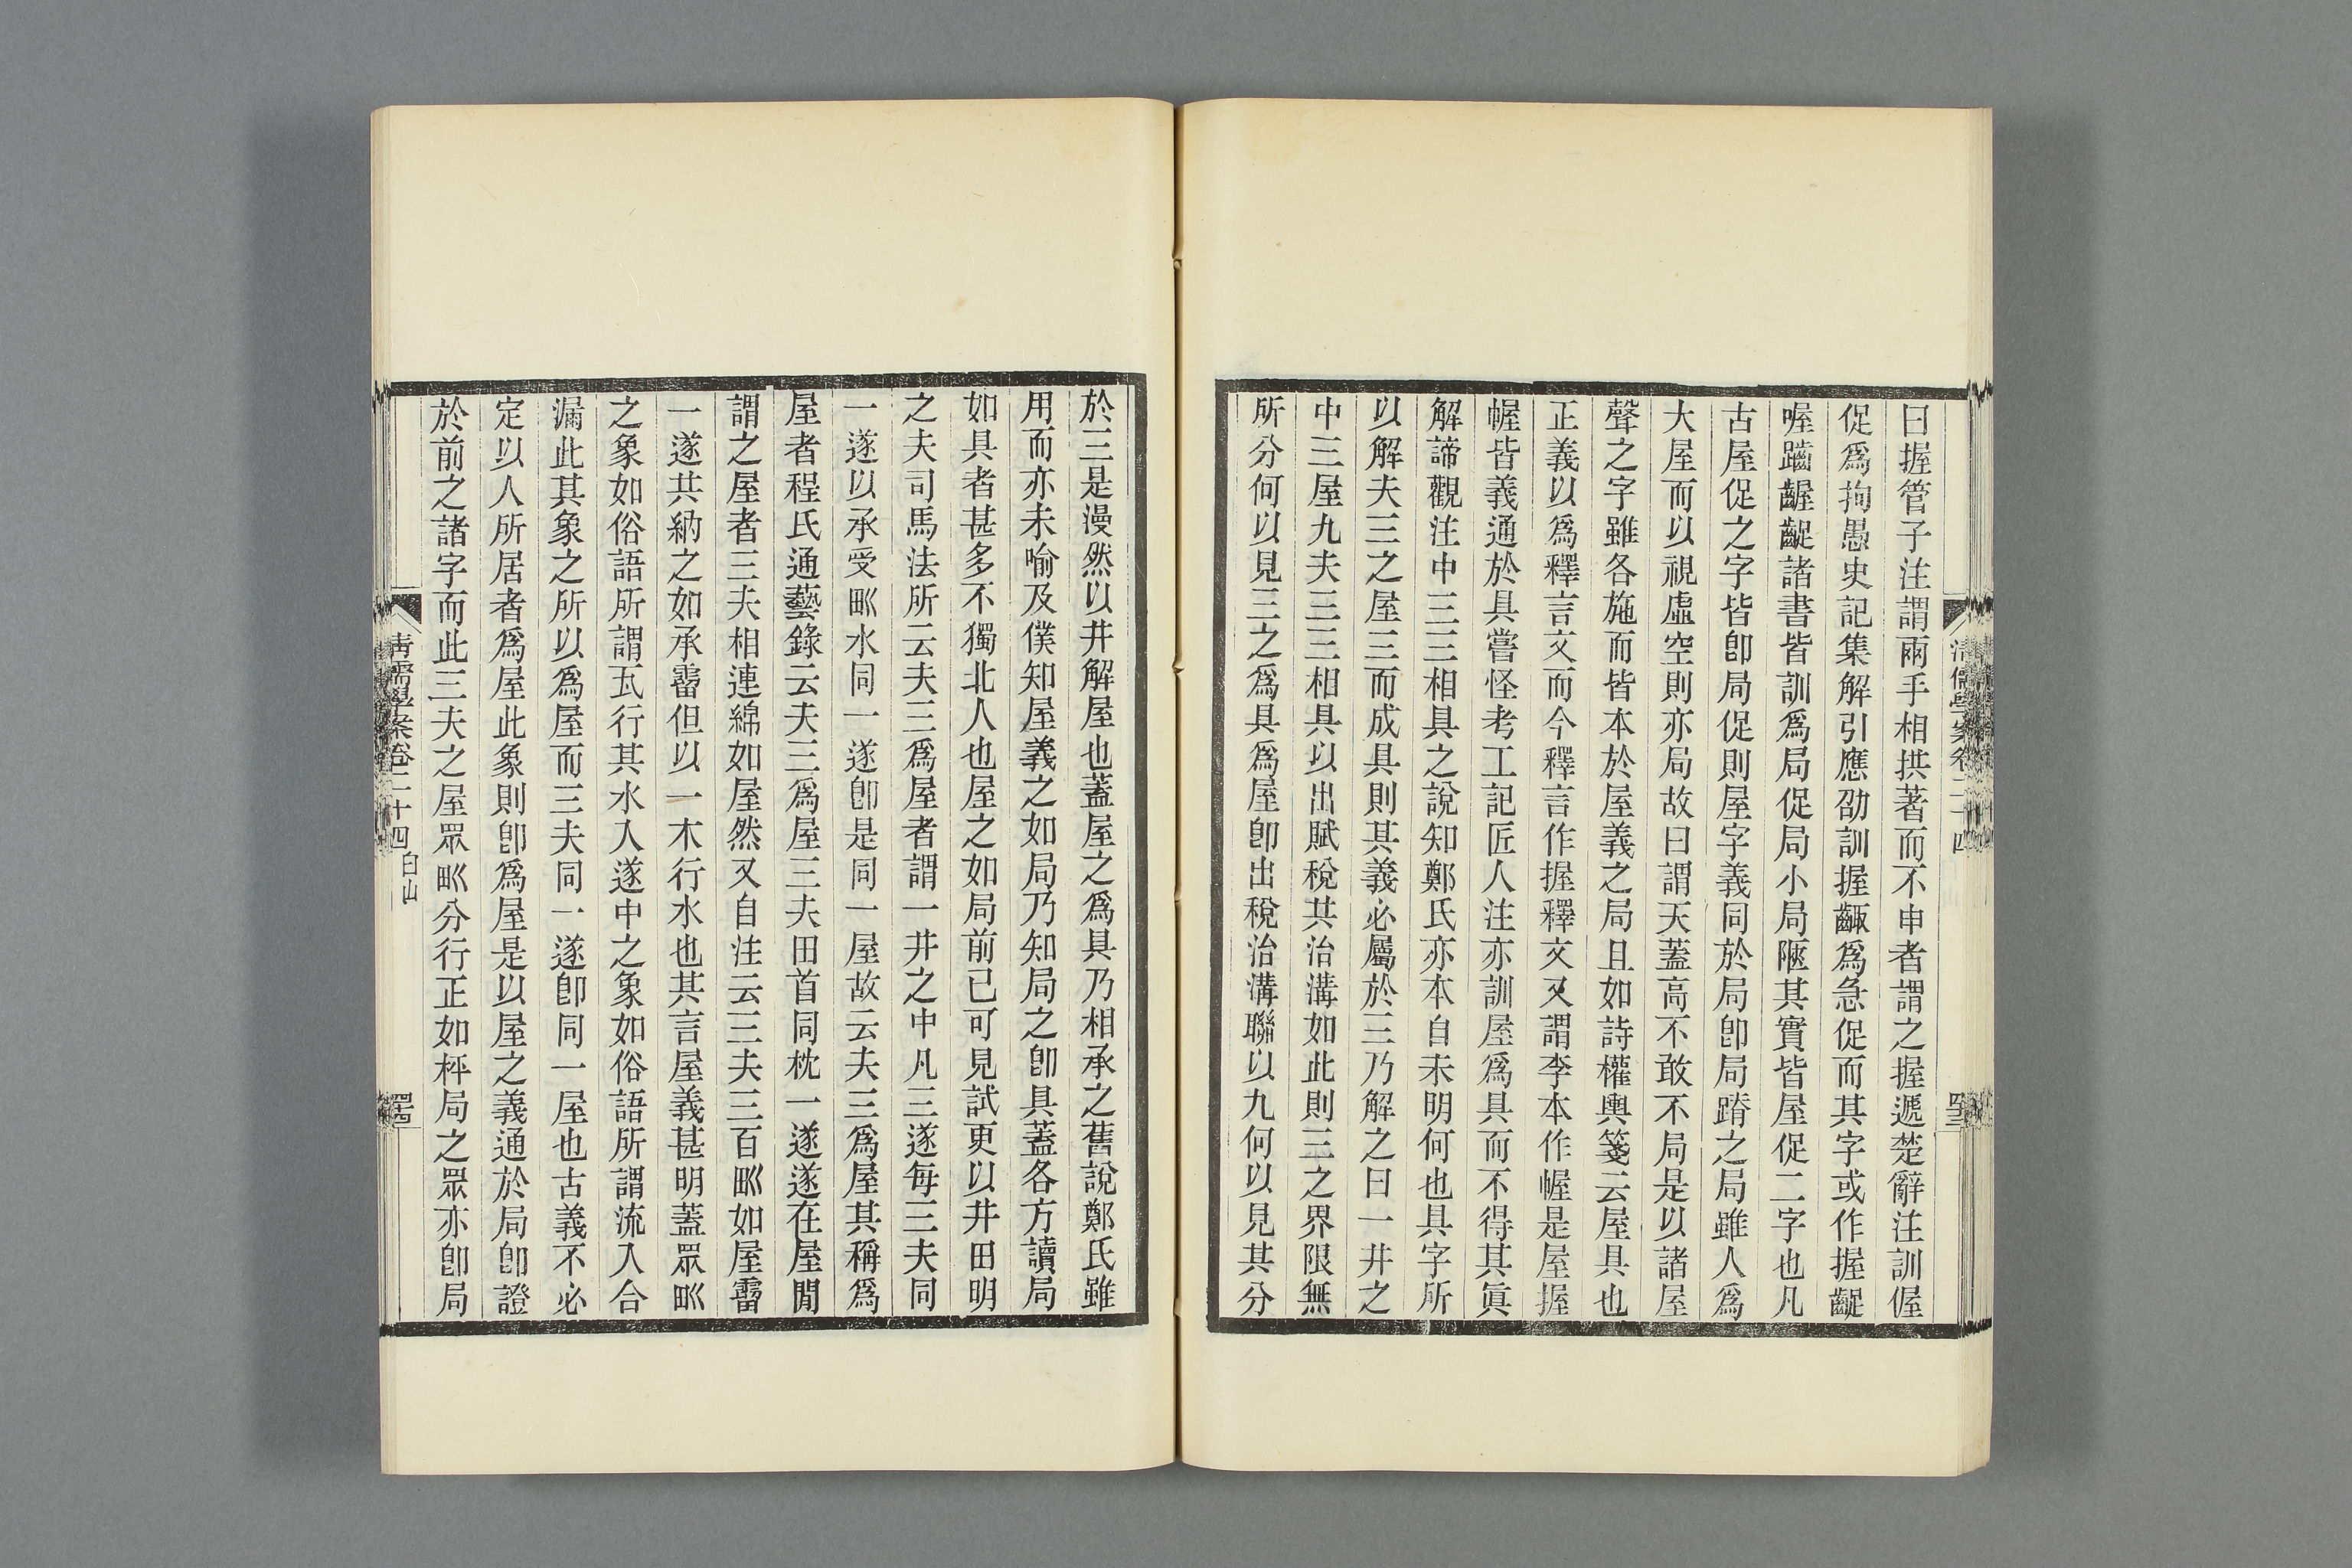 曰握管子注謂兩手相拱著而不申者謂之握遞楚辭注訓偓
促爲拘愚史記集解引應劭訓握齱爲急促而其字或作握齪
喔䠞齷齪諸書皆訓爲局促局小局陿其實皆屋促二字也凡
古屋促之字皆卽局促則屋字義同於局卽局蹐之局雖人爲
大屋而以視虛空則亦局故曰謂天蓋高不敢不局是以諸屋
聲之字雖各施而皆本於屋義之局且如詩權輿箋云屋具也
正義以爲釋言文而今釋言作握釋文又謂李本作幄是屋握
幄皆義通於具嘗怪考工記匠人注亦訓屋爲具而不得其眞
解諦觀注中三三相具之說知鄭氏亦本自未明何也具字所
以解夫三之屋三而成具則其義必屬於三乃解之曰一井之
中三屋九夫三三相具以出賦稅共治溝如此則三之界限無
所分何以見三之爲具爲屋卽出稅治溝聯以九何以見其分
清儒學案卷二十四
於三是漫然以井解屋也蓋屋之爲具乃相承之舊說鄭氏雖
用而亦未喻及僕知屋義之如局乃知局之卽具蓋各方讀局
如具者甚多不獨北人也屋之如局前已可見試更以井田明
之夫司馬法所云夫三爲屋者謂一井之中凡三遂每三夫同
一遂以承受甽水同一遂卽是同一屋故云夫三爲屋其稱爲
屋者程氏通藝錄云夫三爲屋三夫田首同枕一遂遂在屋閒
謂之屋者三夫相連綿如屋然又自注云三夫三百甽如屋霤
一遂共納之如承霤但以一木行水也其言屋義甚明蓋眾甽
之象如俗語所謂瓦行其水入遂中之象如俗語所謂流入合
漏此其象之所以爲屋而三夫同一遂卽同一屋也古義不必
定以人所居者爲屋此象則卽爲屋是以屋之義通於局卽證
於前之諸字而此三夫之屋眾甽分行正如枰局之眾亦卽局
清儒學案卷二十四 白山